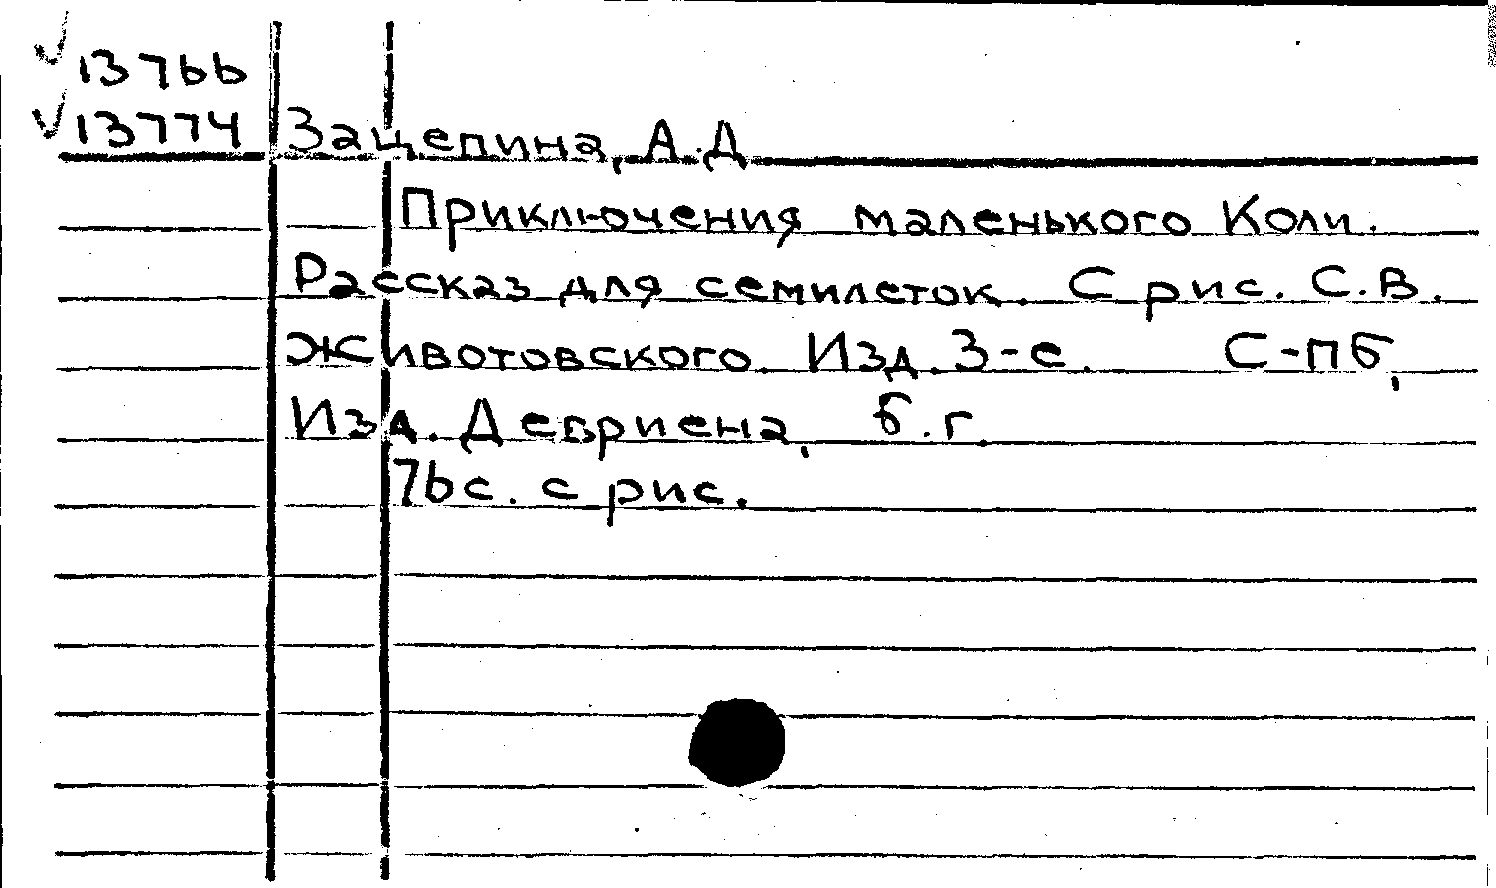 13766
13774
Зацепина, А.Д
Приключения маленького Коли.
Рассказ для семилеток. С рис. С.В.
Животовского. Изд. 3-е. С-пб,
Изд. Девриена, б.г.
76с. с рис.